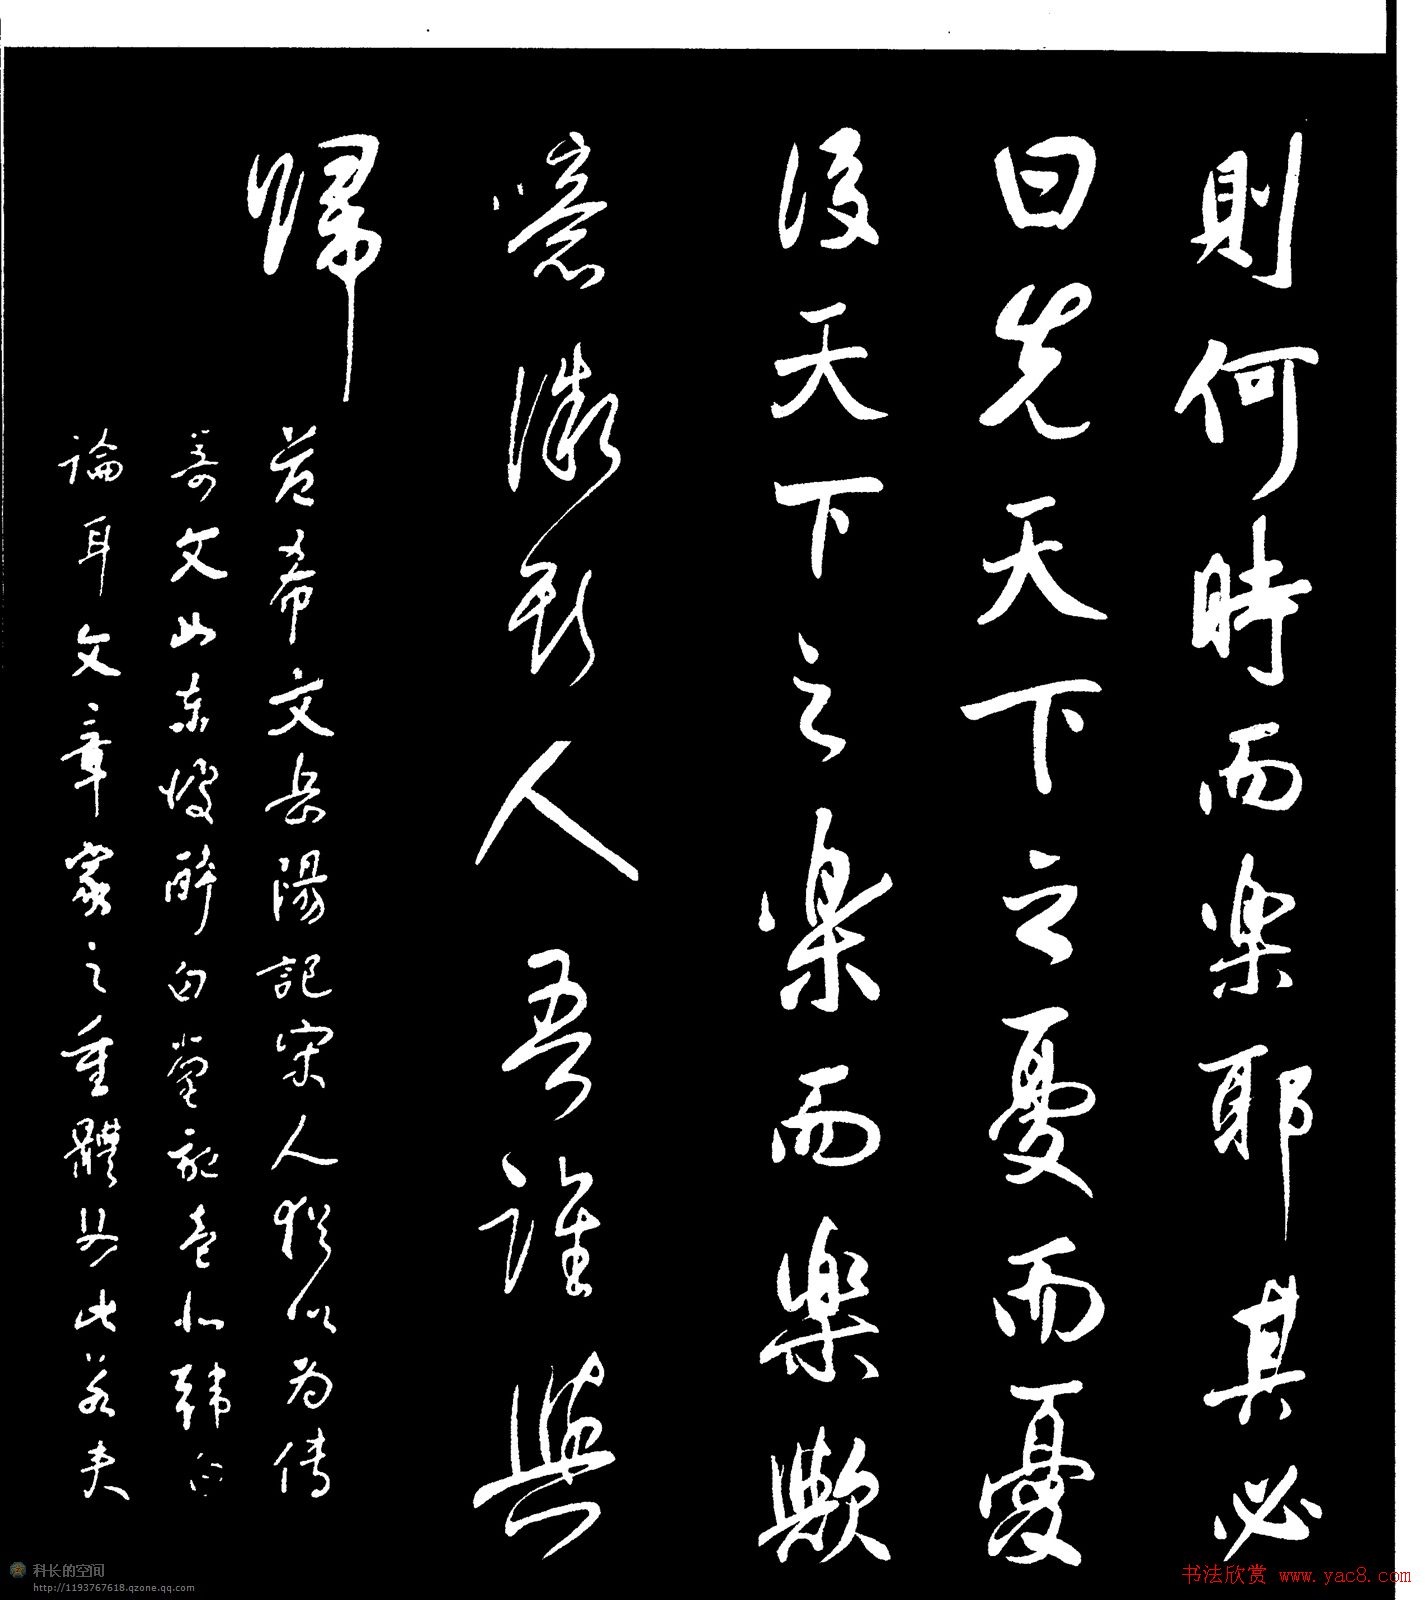 則何時而樂耶其必
曰先天下之憂而憂
後天下之樂而樂歟
噫微斯人吾誰與
歸
范希文岳陽記宋人猶以為傳
奇文此東坡醉白堂記似韓白
論耳文章家之重體如此若夫
科长的空间
http://1193767618.qzone.qq.com
书法欣赏 www.yac8.com